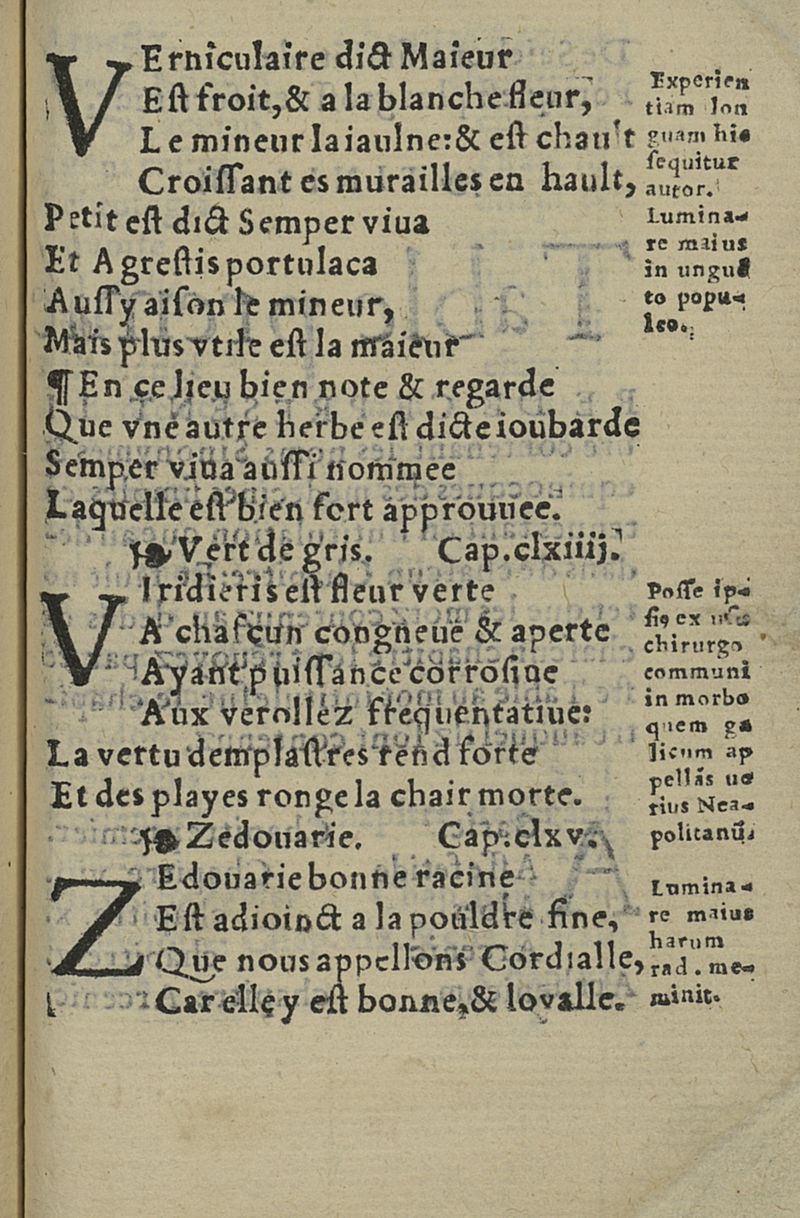 VErniculaire dict Maieur
Est froit, & a la blanche fleur,
Le mineur la iaulne: & est chault
Croissant es murailles en hault,
Petit est dict Semper viua
Et Agrestis portulaca
Aussy aison le mineur,
Mais plus vtile est la maieur
¶ En ce lieu bien note & regarde
Que vne autre herbe est dicte ioubarde
Semper viua aussi nommee
Laquelle est bien fort approuuee.
Vert de gris. Cap.clxiiij.
VIridieris est fleur verte
A chascun congneue & aperte
Ayant puissance corrosiue
Aux verollez frequentatiue:
La vertu demplastres rend forte
Et des playes ronge la chair morte.
Zedouarie. Cap.clxv.
ZEdouarie bonne racine
Est adioinct a la pouldre fine,
Que nous appellons Cordialle,
Car elle y est bonne, & loyalle.
Experien
tiam lon
guam hic
sequitur
autor.
Lumina-
re maius
in unguẽ
to popu-
leo.
Posse ip-
siꝰ ex usu
chirurgo
communi
in morbo
quem ga
licum ap
pellãs ue
rius Nea-
politanũ.
Lumina-
re maius
harum
rad. me-
minit.